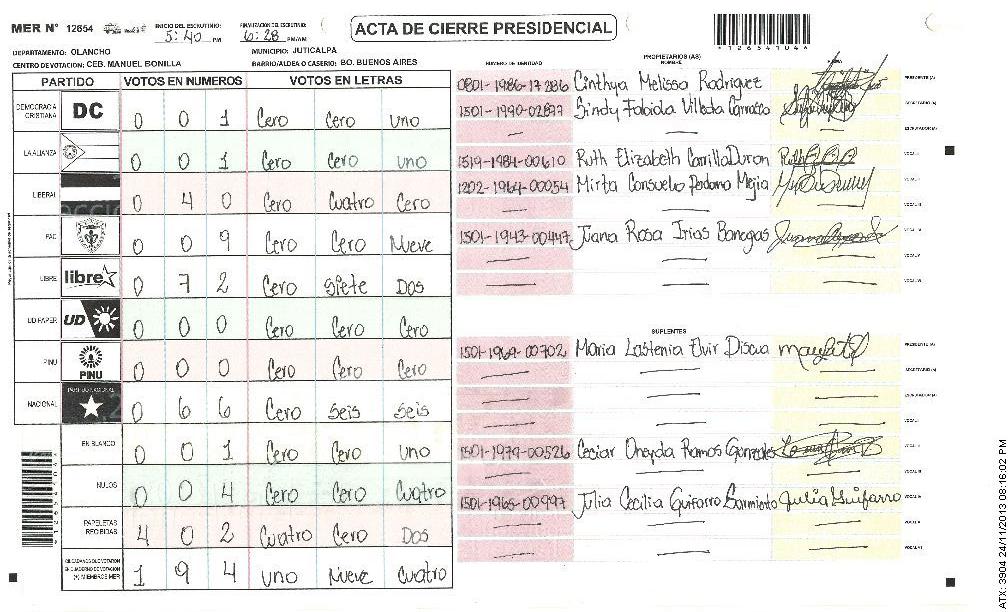 MER N° 12654 INICIO DEL ESCRUTINIO: 5:40 PM FINALIZACION DEL ESCRUTINIO: 6:28 PM/AM
ACTA DE CIERRE PRESIDENCIAL
DEPARTAMENTO: OLANCHO MUNICIPIO: JUTICALPA
CENTRO DE VOTACION: CEB. MANUEL BONILLA BARRIO/ALDEA O CASERIO: BO. BUENOS AIRES
PARTIDO VOTOS EN NUMEROS VOTOS EN LETRAS
DEMOCRACIA CRISTIANA DC 0 0 1 Cero Cero uno
LA ALIANZA 0 0 1 Cero Cero uno
LIBERAL 0 4 0 Cero Cuatro Cero
PAC 0 0 9 Cero Cero Nueve
LIBRE libre 0 7 2 Cero Siete Dos
UD FAPER UD 0 0 0 Cero Cero Cero
PINU PINU 0 0 0 Cero Cero Cero
NACIONAL PARTIDO NACIONAL 0 6 6 Cero Seis Seis
EN BLANCO 0 0 1 Cero Cero uno
NULOS 0 0 4 Cero Cero Cuatro
PAPELETAS RECIBIDAS 4 0 2 Cuatro Cero Dos
CIUDADANOS QUE VOTARON EN CUADERNO DE VOTACION (+) MIEMBROS MER 1 9 4 uno Nueve Cuatro
NUMERO DE IDENTIDAD PROPIETARIOS (AS) NOMBRE FIRMA
0801-1986-17286 Cinthya Melissa Rodriguez PRESIDENTE (A)
1501-1990-02877 Sindy Fabiola Villeda Carrasco SECRETARIO (A)
— — — ESCRUTADOR (A)
1519-1984-00610 Ruth Elizabeth Carrilla Duron VOCAL I
1202-1964-00054 Mirta Consuelo Perdomo Mejia VOCAL II
— — — VOCAL III
1501-1943-00447 Juana Rosa Irias Banegas VOCAL IV
— — — VOCAL V
— — — VOCAL VI
SUPLENTES
1501-1969-00702 Maria Lastenia Elvir Discua PRESIDENTE (A)
— — — SECRETARIO (A)
— — — ESCRUTADOR (A)
— — — VOCAL I
1501-1979-00526 Cesiar Oneyda Ramos Gonzales VOCAL II
— — — VOCAL III
1501-1965-00997 Julia Cecilia Guifarro Sarmiento Julia Guifarro VOCAL IV
— — — VOCAL V
— — — VOCAL VI
ATX: 3904 24/11/2013 08:16:02 PM